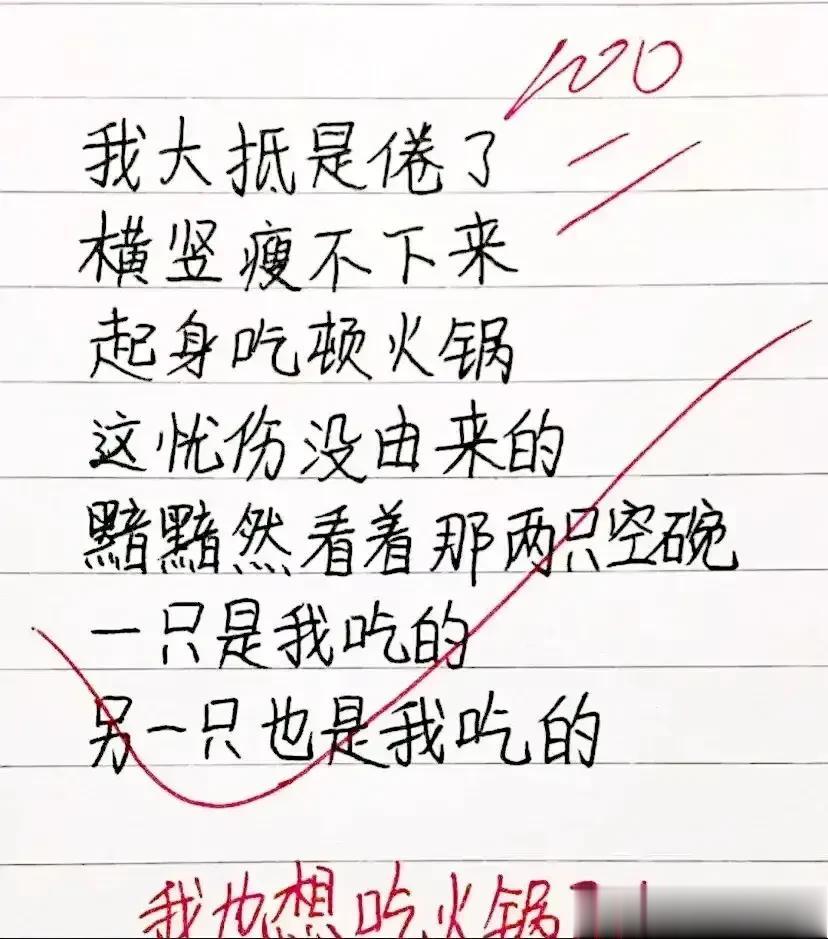 100
我大抵是倦了
横竖瘦不下来
起身吃顿火锅
这忧伤没由来的
黯黯然看着那两只空碗
一只是我吃的
另一只也是我吃的
我也想吃火锅